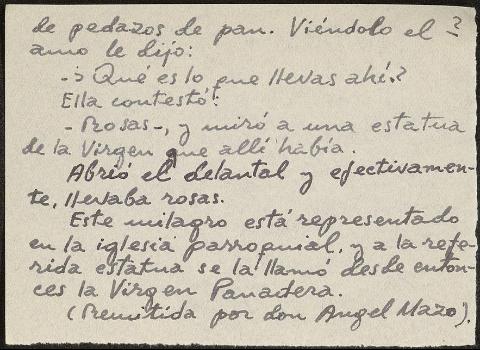 de pedazos de pan. Viéndolo el ?
amo le dijo:
-¿Qué es lo que llevas ahí?
Ella contestó:
-Rosas-, y miró a una estatua
de la Virgen que allí había.
Abrió el delantal y efectivamen-
te, llevaba rosas.
Este milagro está representado
en la iglesia parroquial, y a la refe-
rida estatua se la llamó desde enton-
ces la Virgen Panadera.
(Remitida por don Angel Mazo).